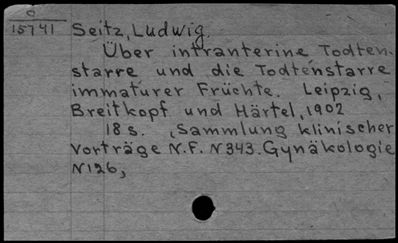 O
15741 Seitz, Ludwig.
Über intranterine Todten-
starre und die Todtenstarre
immaturer Früchte. Leipzig,
Breitkopf und Härtel, 1902
18 s. (Sammlung klinischer
Vorträge N.F. N343. Gynäkologie
N126)